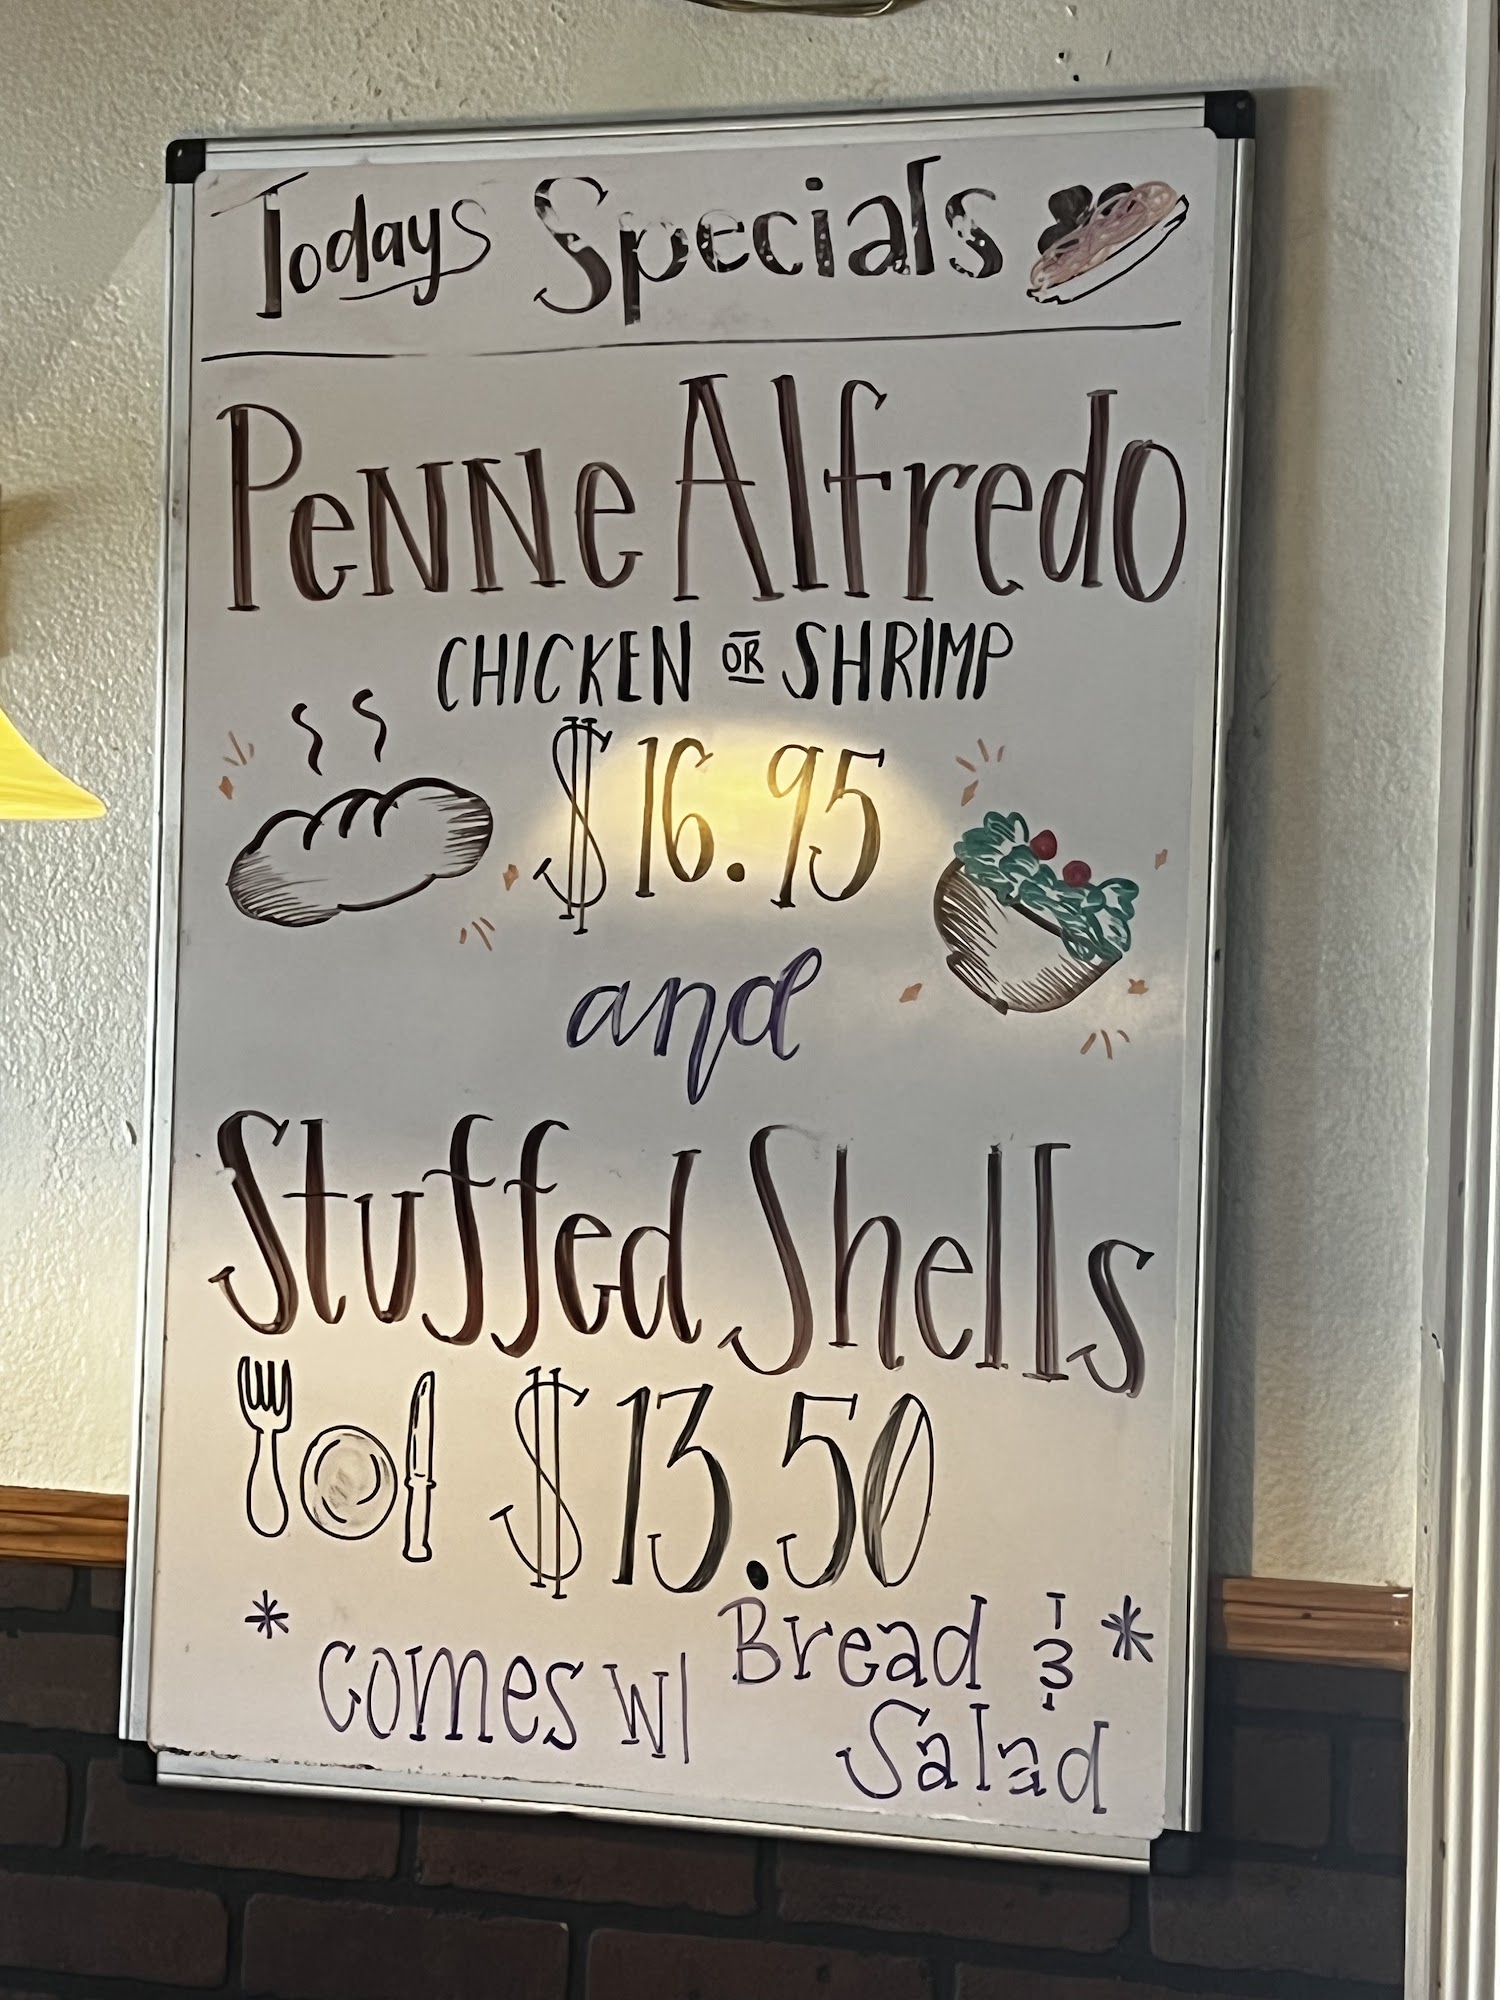 Todays Specials
Penne Alfredo
CHICKEN OR SHRIMP
$16.95
and
Stuffed Shells
$13.50
* comes w/ Bread & *
Salad